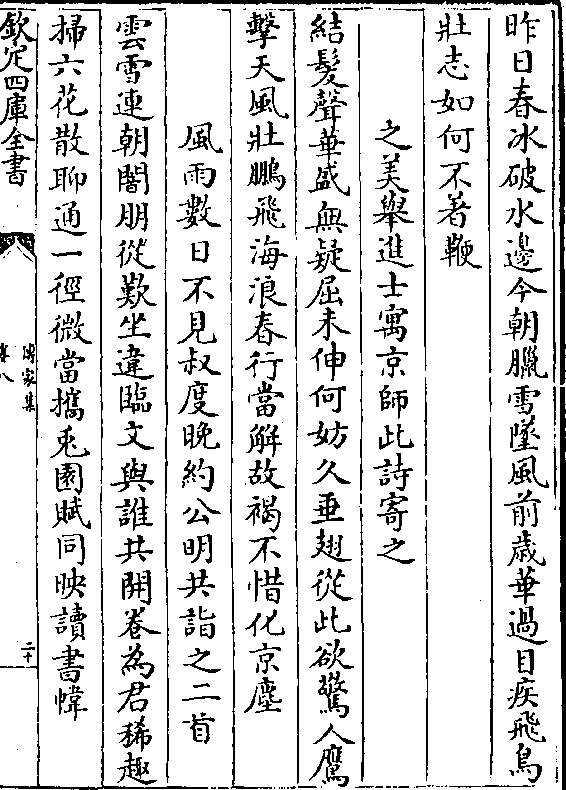 昨日春冰破水邊今朝臘雪墜風前歲華過目疾飛鳥
壯志如何不著鞭
之美舉進士寓京師此詩寄之
結髮聲華盛無疑屈未伸何妨久垂翅從此欲驚人鷹
擊天風壯鵬飛海浪春行當解故褐不惜化京塵
風雨數日不見叔度晚約公明共詣之二首
雲雪連朝闇朋從歎坐違臨文與誰共開卷為君稀趣
掃六花散聊通一徑微當攜兎園賦同映讀書幃
欽定四庫全書
傳家集
卷八
二十